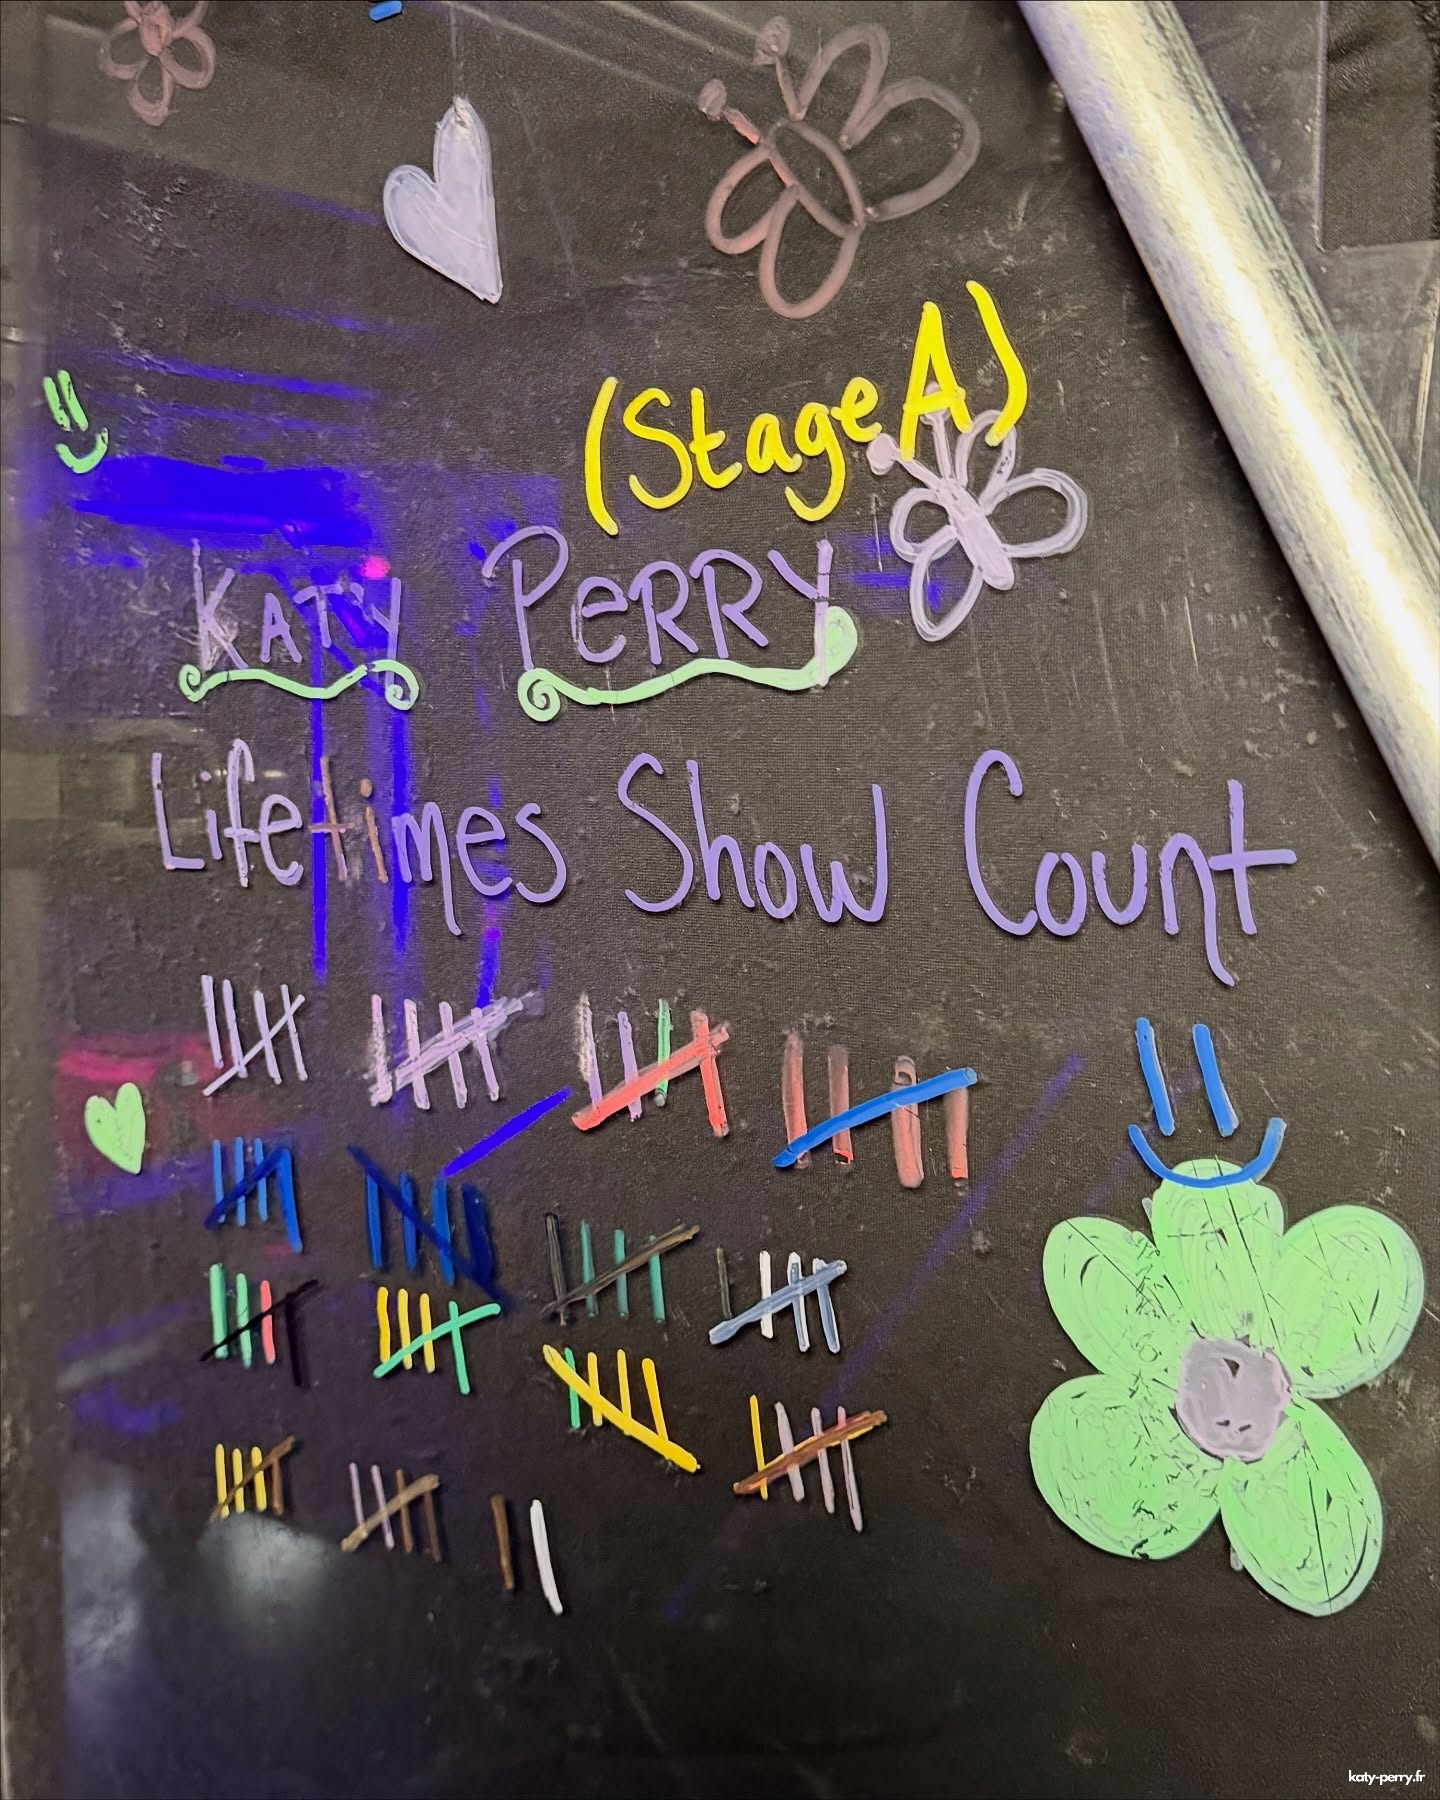 (Stage A)
KATY PeRRY
Lifetimes Show Count
katy-perry.fr